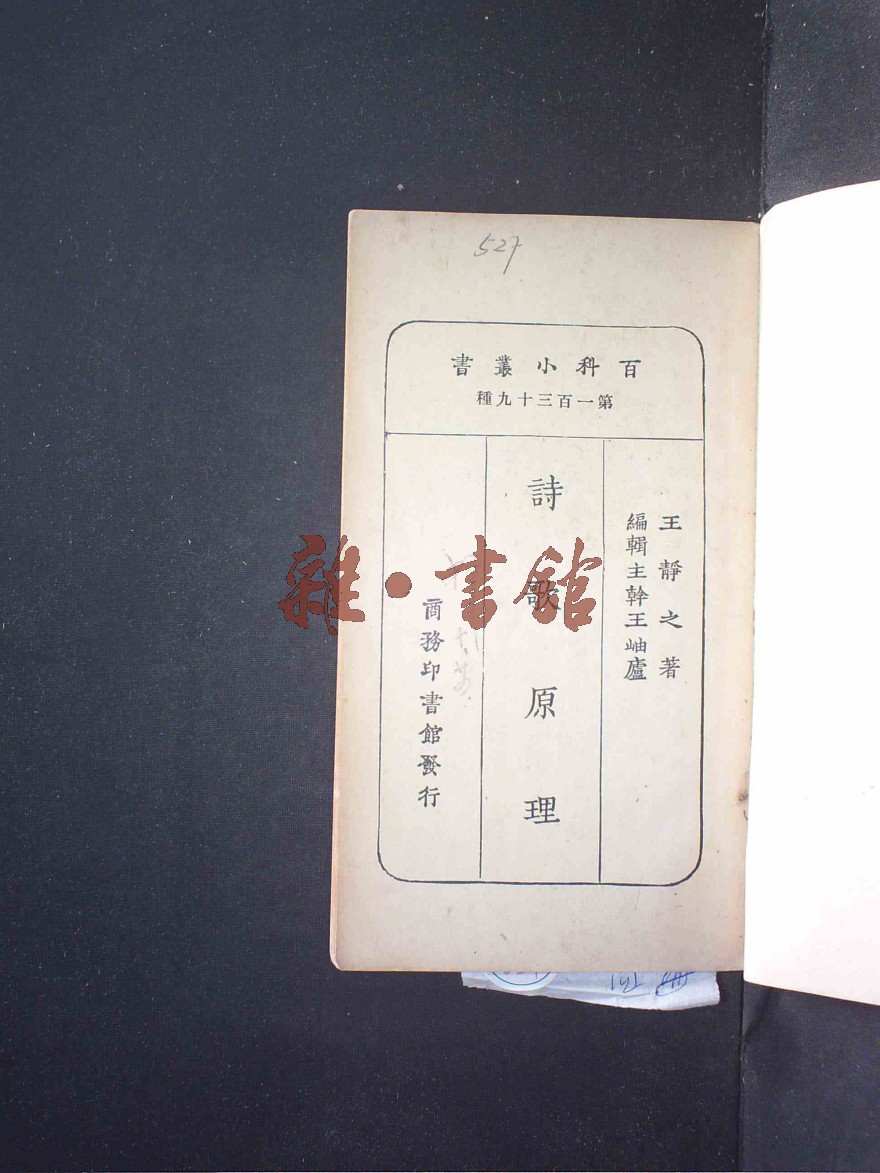 527
百科小叢書
第一百三十九種
王靜之著
編輯主幹王岫廬
詩歌原理
商務印書館發行
雜·書館